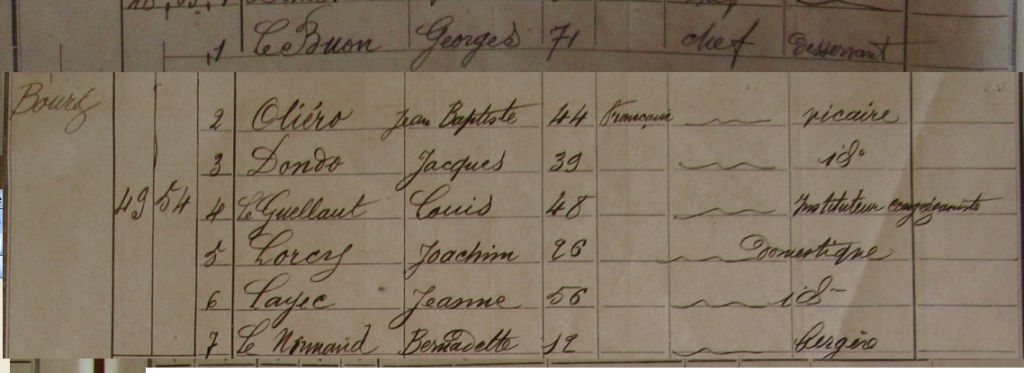 1 Le Buon Georges 71 chef Desservant
Bourg
2 Oliéro Jean Baptiste 44 Française vicaire
3 Dondo Jacques 39 id.
49 54 4 Le Guellaut Louis 48 Instituteur congréganiste
5 Lorcy Joachim 26 Domestique
6 Layec Jeanne 56 id
7 Le Normand Bernadette 12 bergère